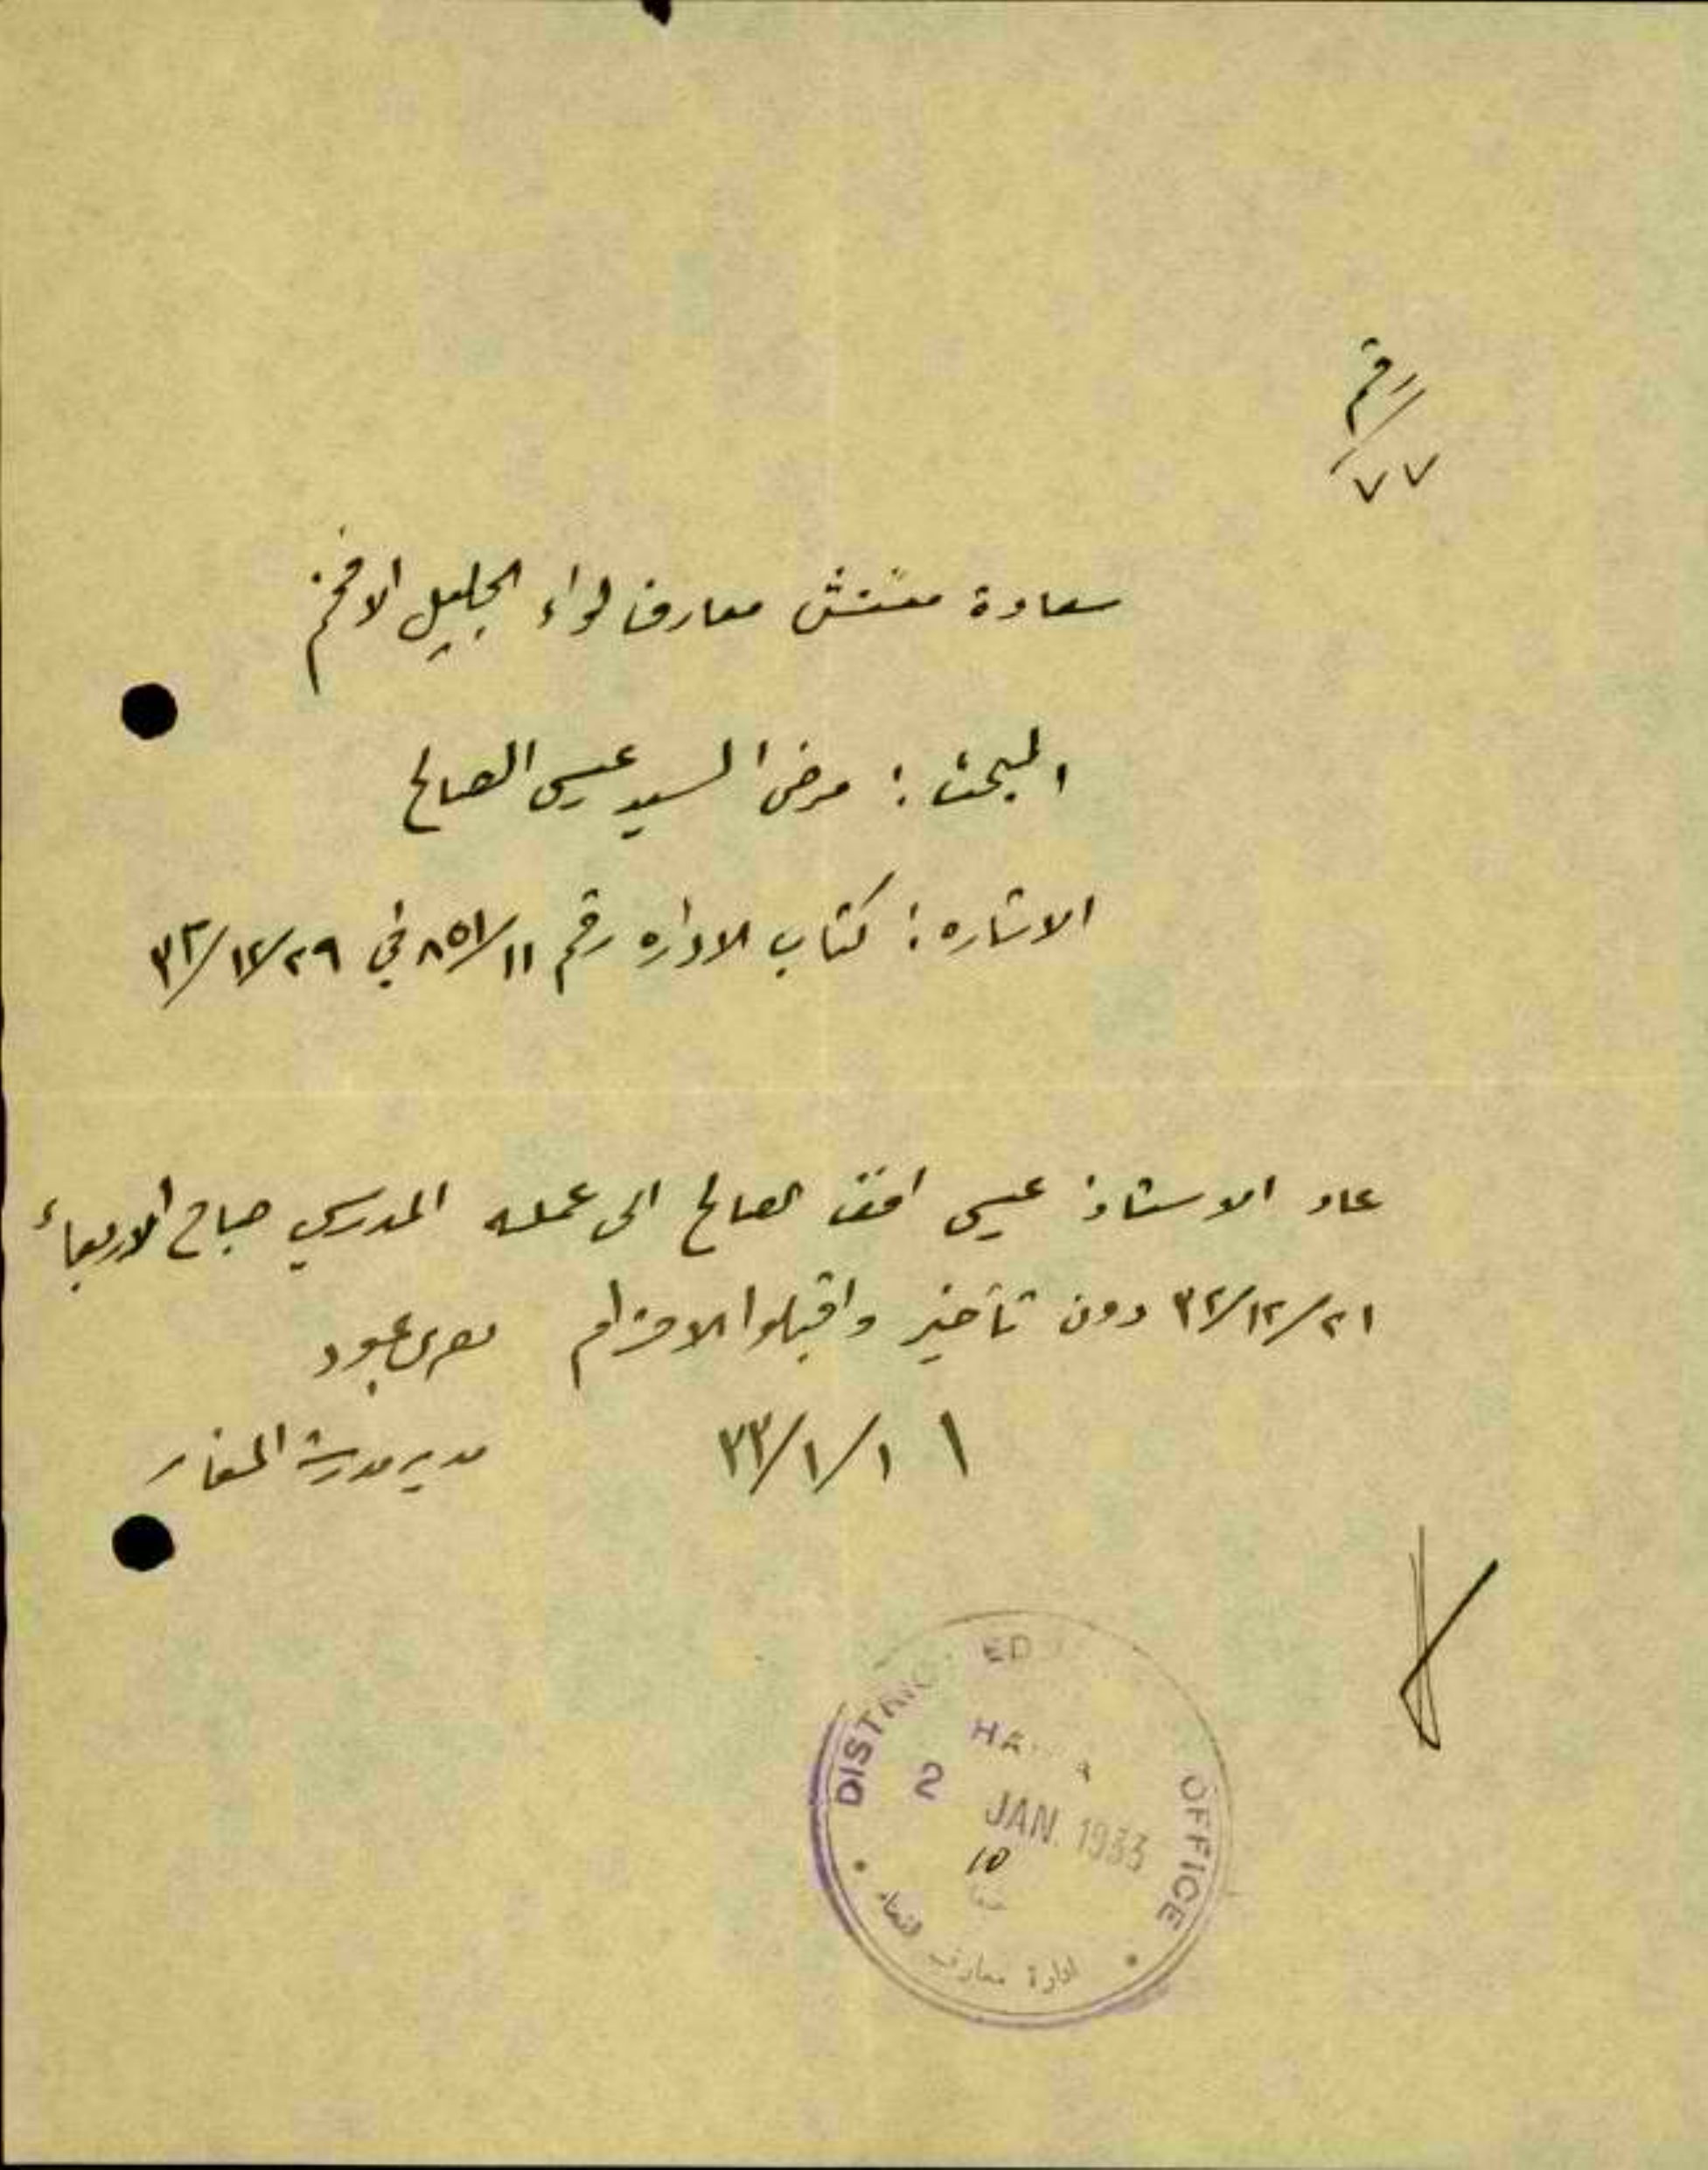 رقم
٧٧
سعادة مفتش معارف لواء الجليل الافخم
المبحث : مرض السيد عيسى الصالح
الاشاره : كتاب الاداره رقم ٨٥١/١١ في ٣٢/١٢/٢٩
عاد الاستاذ عيسى افندي الصالح الى عمله المدرسي صباح الاربعاء
٣٢/١٢/٢١ دون تأخير واقبلوا الاحترام
٣٣/١/١
مدير مدرسة المغار
DISTRICT ED OFFICE
HAIFA
2 JAN. 1933
10
ادارة معارف قضاء